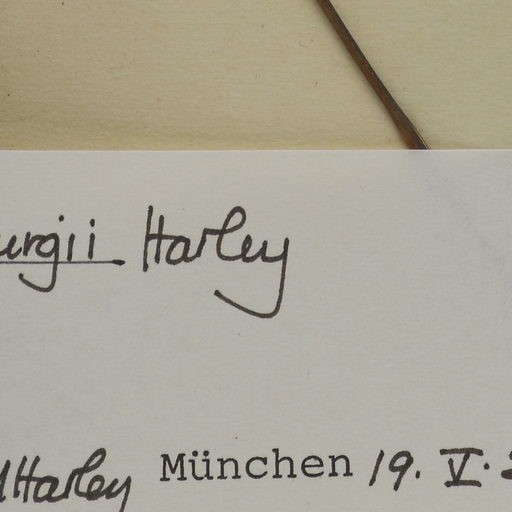 urgii Harley
Harley München 19. V.